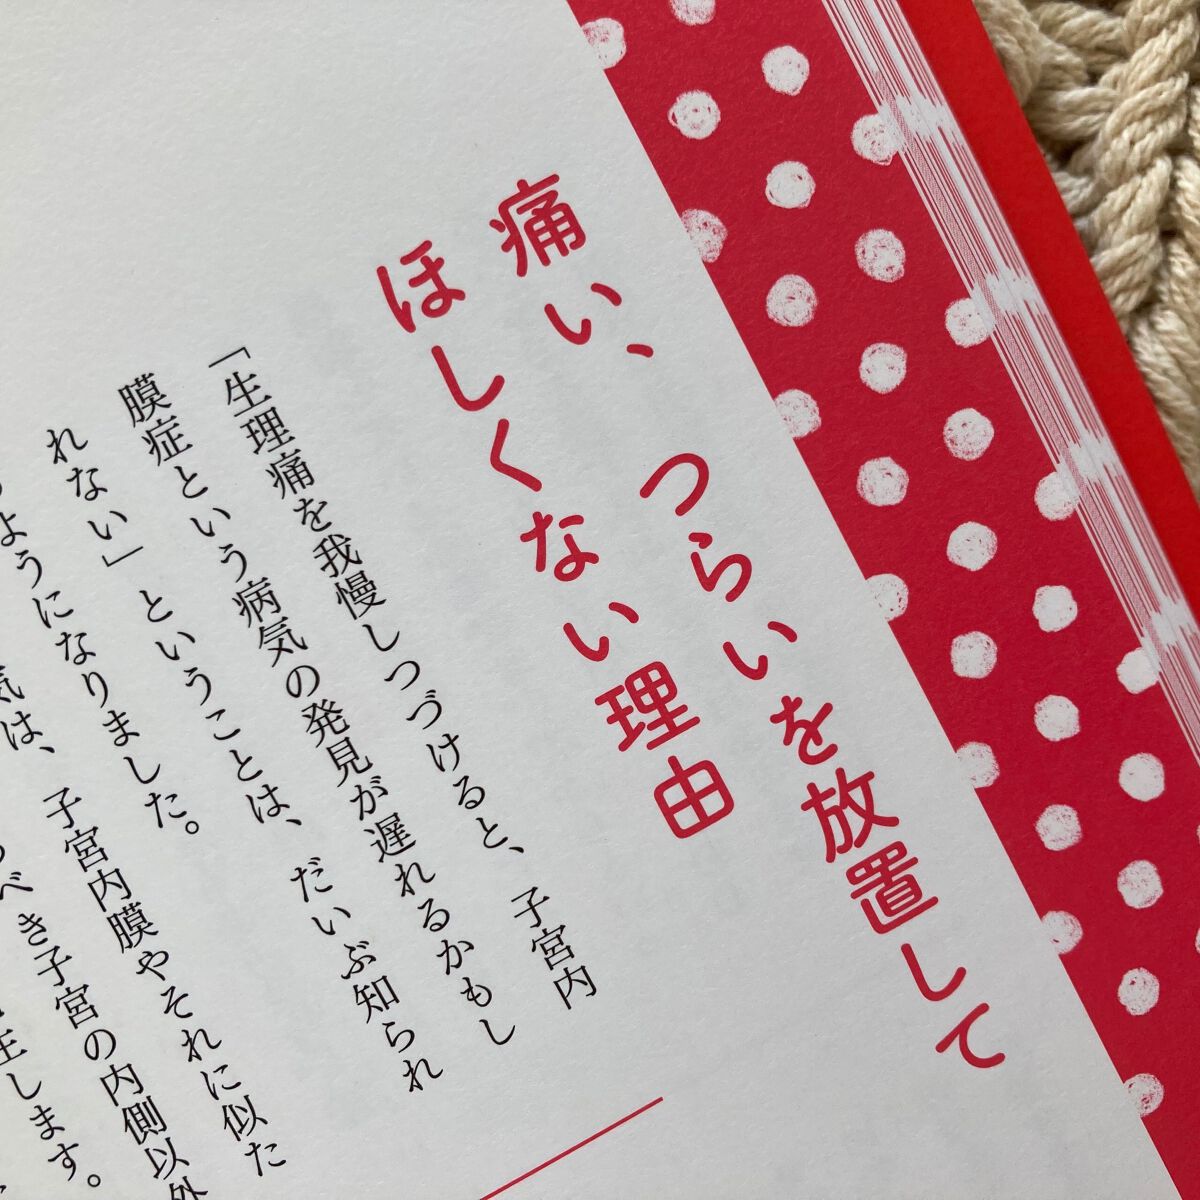 痛い、つらいを放置して
ほしくない理由
「生理痛を我慢しつづけると、子宮内
膜症という病気の発見が遅れるかもし
れない」ということは、だいぶ知られ
るようになりました。
気は、子宮内膜やそれに似た
べき子宮の内側以外
生します。